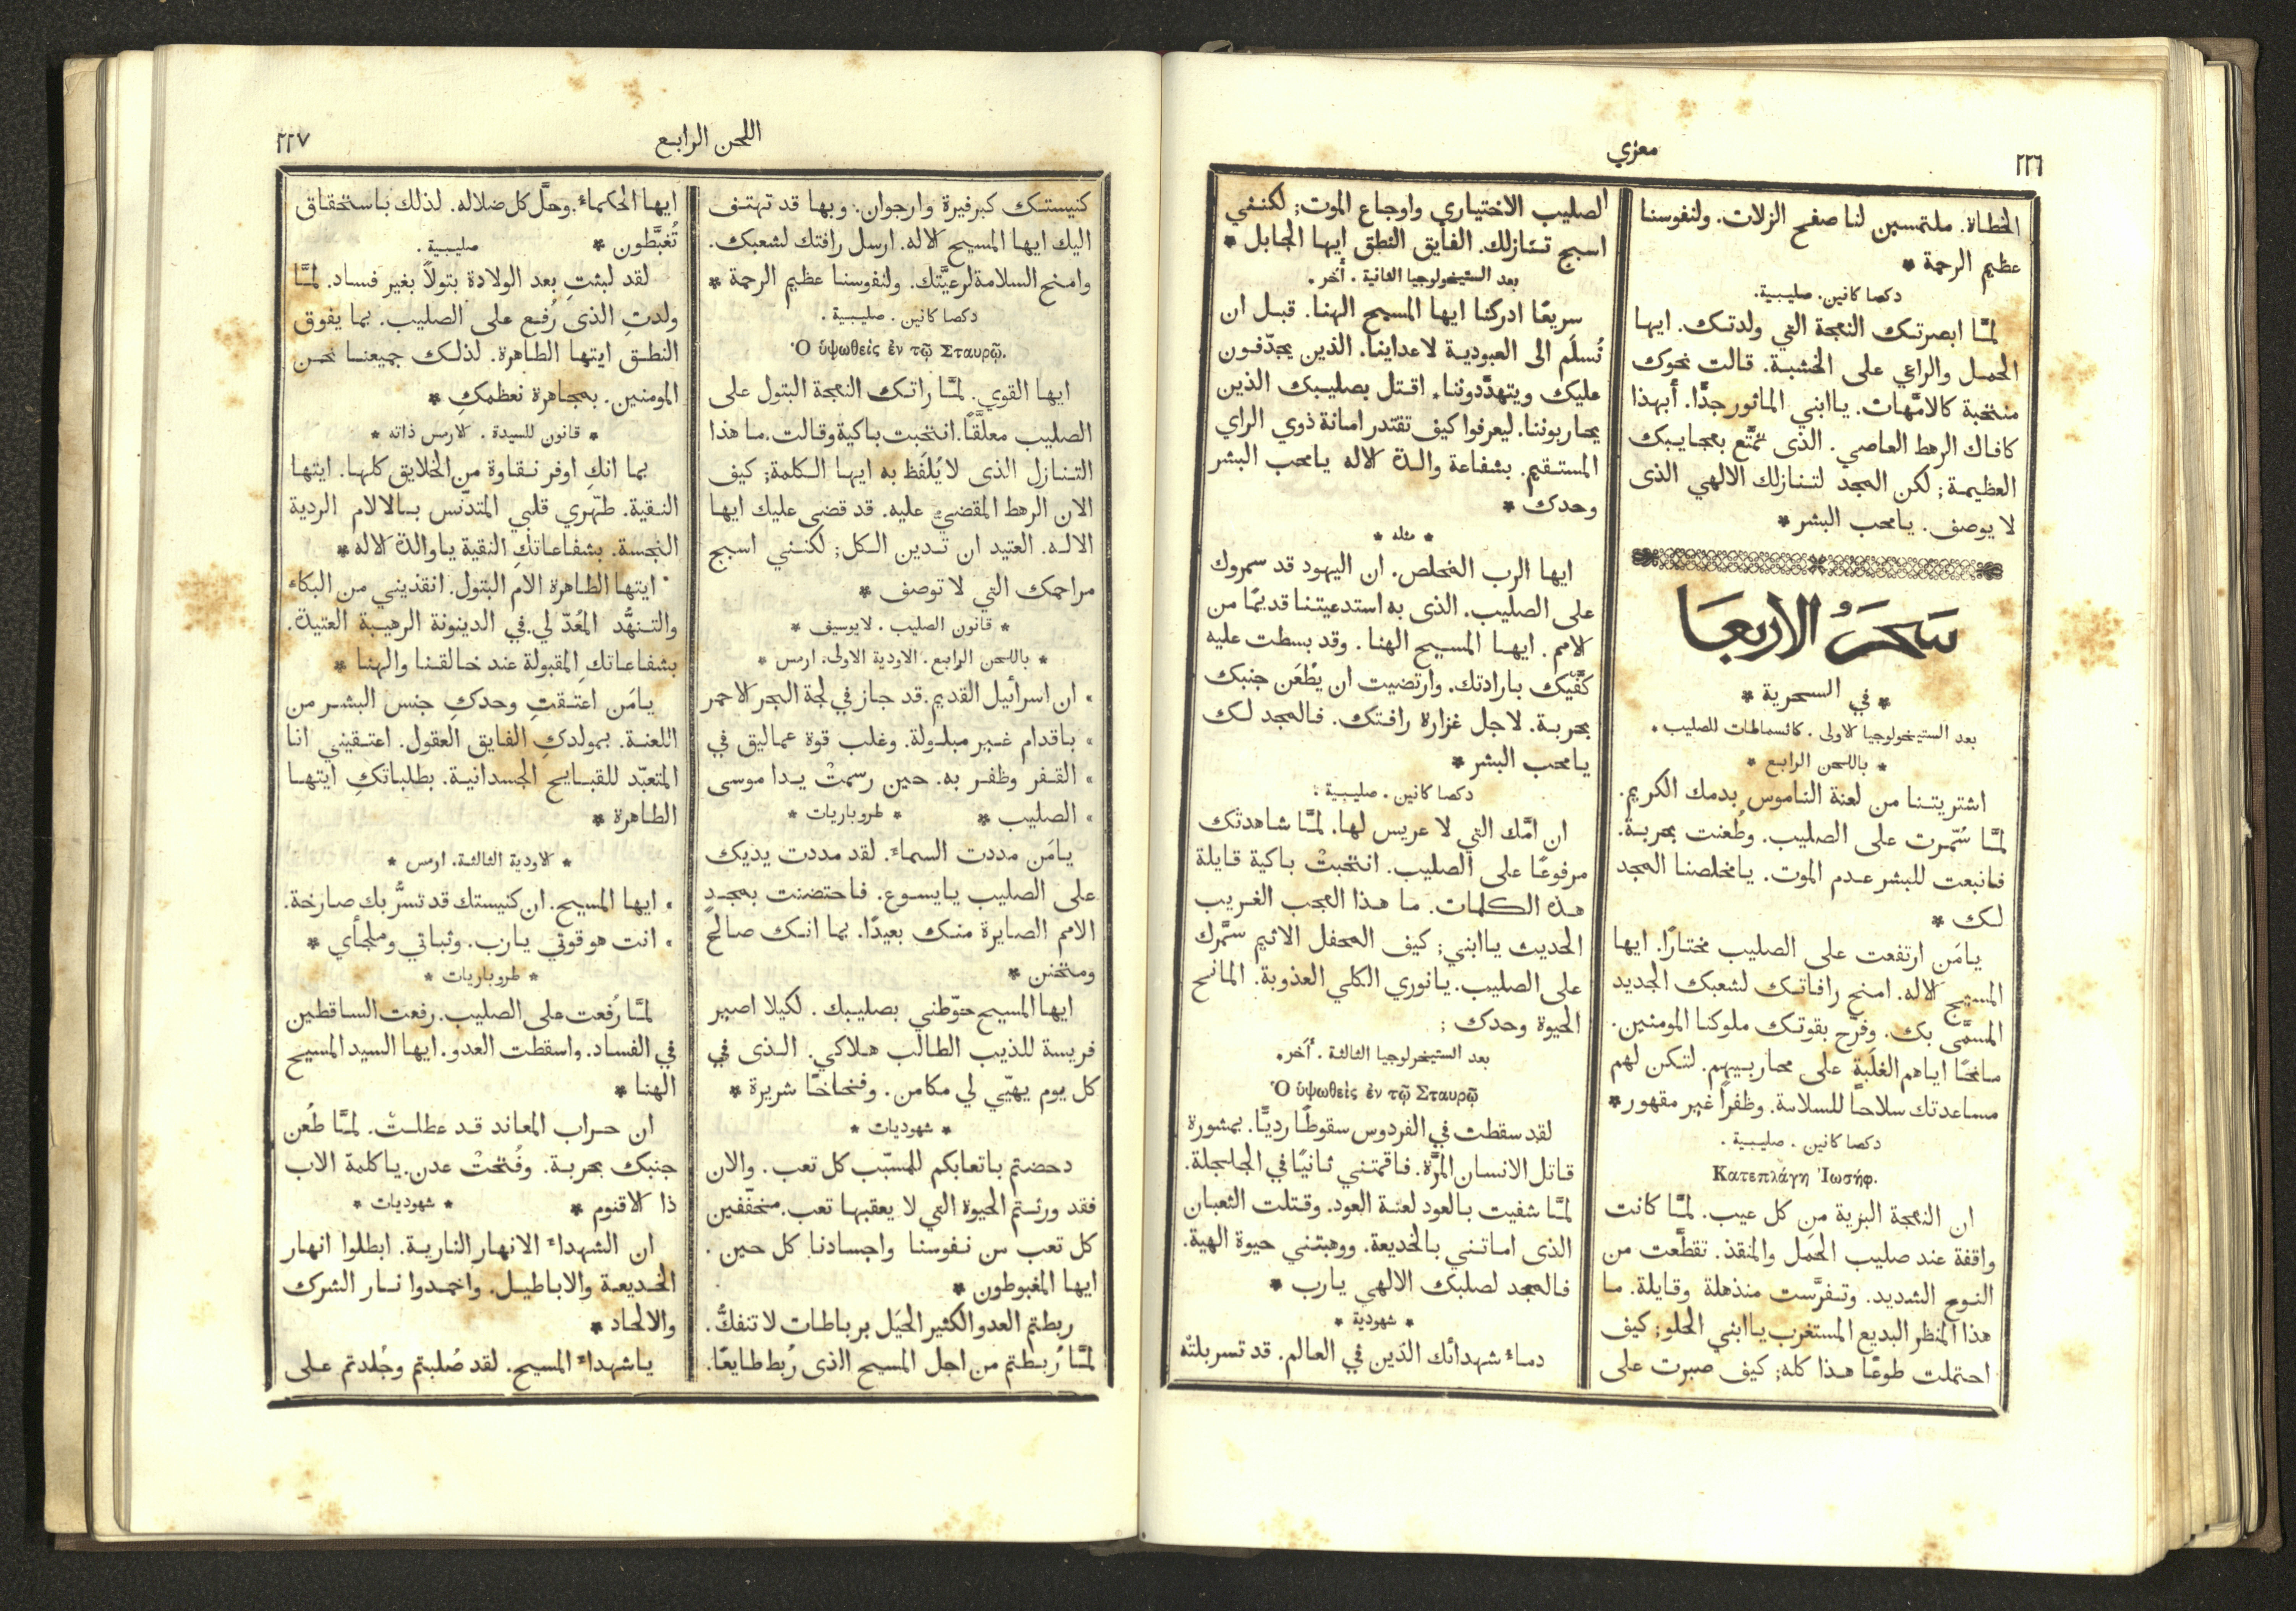 ٢٢٦
معزي
الخطاة. ملتمسين لنا صفح الزلات. ولنفوسنا
عظيم الرحمة *
دكصا كانين. صليبية.
لمَّا ابصرتك النعجة التي ولدتك. ايها
الحمل والراعي على الخشبة. قالت نحوك
منتحبة كالامَّهات. ياابني الماثور جدًّا. أبهذا
كافاك الرهط العاصي. الذى تمتَّع بعجايبك
العظيمة; لكن المجد لتنازلك الالهي الذى
لا يوصف. يامحب البشر *
سَحَرُ الاربعَا
* في السحرية *
بعد الستيخولوجيا الاولى. كاثسماطات للصليب.
* باللحن الرابع *
اشتريتنا من لعنة الناموس بدمك الكريم.
لمَّا سُمّرت على الصليب. وطُعنت بحربة.
فانبعت للبشر عدم الموت. يامخلصنا المجد
لك *
يامَن ارتفعت على الصليب مختارًا. ايها
المسيح الاله. امنح رافاتك لشعبك الجديد
المسمَّى بك. وفرّح بقوتك ملوكنا المومنين.
مانحًا اياهم الغلَبة على محاربيهم. لتكن لهم
مساعدتك سلاحاً للسلامة. وظفراً غير مقهور *
دكصا كانين. صليبية.
Κατεπλάγη Ἰωσήφ.
ان النعجة البرية من كل عيب. لمَّا كانت
واقفة عند صليب الحَمل والمنقذ. تقطَّعت من
النوح الشديد. وتفرَّست منذهلة وقايلة. ما
هذا المنظر البديع المستغرب ياابني الحلو; كيف
احتملت طوعًا هذا كله; كيف صبرت على
الصليب الاختياري واوجاع الموت; لكنني
اسبح تنازلك. الفايق النطق ايها الجابل *
بعد الستيخولوجيا الثانية. أخر.
سريعًا ادركنا ايها المسيح الهنا. قبل ان
نُسلَم الى العبودية لاعداينا. الذين يجدّفون
عليك ويتهدَّدوننا. اقتل بصليبك الذين
يحاربوننا. ليعرفوا كيف تقتدر امانة ذوي الراي
المستقيم. بشفاعة والدة الاله يامحب البشر
وحدك *
* مثله *
ايها الرب المخلص. ان اليهود قد سمروك
على الصليب. الذى به استدعيتنا قديمًا من
الامم. ايها المسيح الهنا. وقد بسطت عليه
كفَّيك بارادتك. وارتضيت ان يُطعَن جنبك
بحربة. لاجل غزارة رافتك. فالمجد لك
يامحب البشر *
دكصا كانين. صليبية:
ان امَّك التي لا عريس لها. لمَّا شاهدتك
مرفوعًا على الصليب. انتحبتْ باكية قايلة
هذه الكلمات. ما هذا العجب الغريب
الحديث ياابني; كيف المحفل الاثيم سمَّرك
على الصليب. يانوري الكلي العذوبة. المانح
الحيوة وحدك;
بعد الستيخولوجيا الثالثة. أخر.
Ὁ ὑψωθεὶς ἐν τῷ Σταυρῷ
لقد سقطت في الفردوس سقوطًا رديًّا. بمشورة
قاتل الانسان المرَّة. فاقمتني ثانيًا في الجلجلة.
لمَّا شفيت بالعود لعنة العود. وقتلت الثعبان
الذى اماتني بالخديعة. ووهبتني حيوة الهية.
فالمجد لصلبك الالهي يارب *
* شهودية *
دماء شهدائك الذين في العالم. قد تسربلته
اللحن الرابع
٢٢٧
كنيستك كبرفيرة وارجوان. وبها قد تهتف
اليك ايها المسيح الاله. ارسل رافتك لشعبك.
وامنح السلامة لرعيَّتك. ولنفوسنا عظيم الرحمة *
دكصا كانين. صليبية.
Ὁ ὑψωθεὶς ἐν τῷ Σταυρῷ.
ايها القوي. لمَّا راتك النعجة البتول على
الصليب معلَّقًا. انتحبت باكية وقالت. ما هذا
التنازل الذى لا يُلفَظ به ايها الكلمة; كيف
الان الرهط المقضيّ عليه. قد قضى عليك ايها
الاله. العتيد ان تدين الكل; لكنني اسبح
مراحمك التي لا توصف *
* قانون الصليب. لايوسيف *
* باللحن الرابع. الاودية الاولى. ارمس *
« ان اسرائيل القديم. قد جاز في لجة البحر الاحمر
« باقدام غير مبلولة. وغلب قوة عماليق في
« القفر وظفر به. حين رسمتْ يدا موسى
« الصليب * * طروباريات *
يامَن مددت السماء. لقد مددت يديك
على الصليب يايسوع. فاحتضنت بمجدٍ
الامم الصايرة منك بعيدًا. بما انك صالح
ومتحنن *
ايها المسيح حوّطني بصليبك. لكيلا اصير
فريسة للذيب الطالب هلاكي. الذى في
كل يوم يهيّي لي مكامن. وفخاخًا شريرة *
* شهوديات *
دحضتم باتعابكم للمسبّب كل تعب. والان
فقد ورثتم الحيوة التي لا يعقبها تعب. مخفّفين
كل تعب من نفوسنا واجسادنا كل حين.
ايها المغبوطون *
ربطتم العدو الكثير الحيَل برباطات لا تنفكُّ.
لمَّا رُبطتم من اجل المسيح الذى رُبط طايعًا.
ايها الحكماء. وحلَّ كل ضلاله. لذلك باستحقاق
تُغبَّطون * صليبية.
لقد لبثتِ بعد الولادة بتولاً بغير فساد. لمَّا
ولدتِ الذى رُفع على الصليب. بما يفوق
النطق ايتها الطاهرة. لذلك جميعنا نحن
المومنين. بمجاهرة نعظمكِ *
* قانون للسيدة. الارمس ذاته *
بما انكِ اوفر نقاوة من الخلايق كلها. ايتها
النقية. طهّري قلبي المتدنّس بالالام الردية
النجسة. بشفاعاتكِ النقية ياوالدة الاله *
ايتها الطاهرة الام البتول. انقذيني من البكاء
والتنهُّد المُعدّ لي. في الدينونة الرهيبة العتيدة.
بشفاعاتكِ المقبولة عند خالقنا والهنا *
يامَن اعتقتِ وحدكِ جنس البشر من
اللعنة. بمولدكِ الفايق العقول. اعتقيني انا
المتعبّد للقبايح الجسدانية. بطلباتكِ ايتها
الطاهرة *
* الاودية الثالثة. ارمس *
« ايها المسيح. ان كنيستك قد تسرُّ بك صارخة.
« انت هو قوتي يارب. وثباتي وملجأي *
* طروباريات *
لمَّا رُفعت على الصليب. رفعت الساقطين
في الفساد. واسقطت العدو. ايها السيد المسيح
الهنا *
ان حراب المعاند قد عطلتْ. لمَّا طُعن
جنبك بحربة. وفُتحتْ عدن. ياكلمة الاب
ذا الاقنوم * * شهوديات *
ان الشهداء الانهار النارية. ابطلوا انهار
الخديعة والاباطيل. واخمدوا نار الشرك
والالحاد *
ياشهداء المسيح. لقد صُلبتم وجُلدتم على